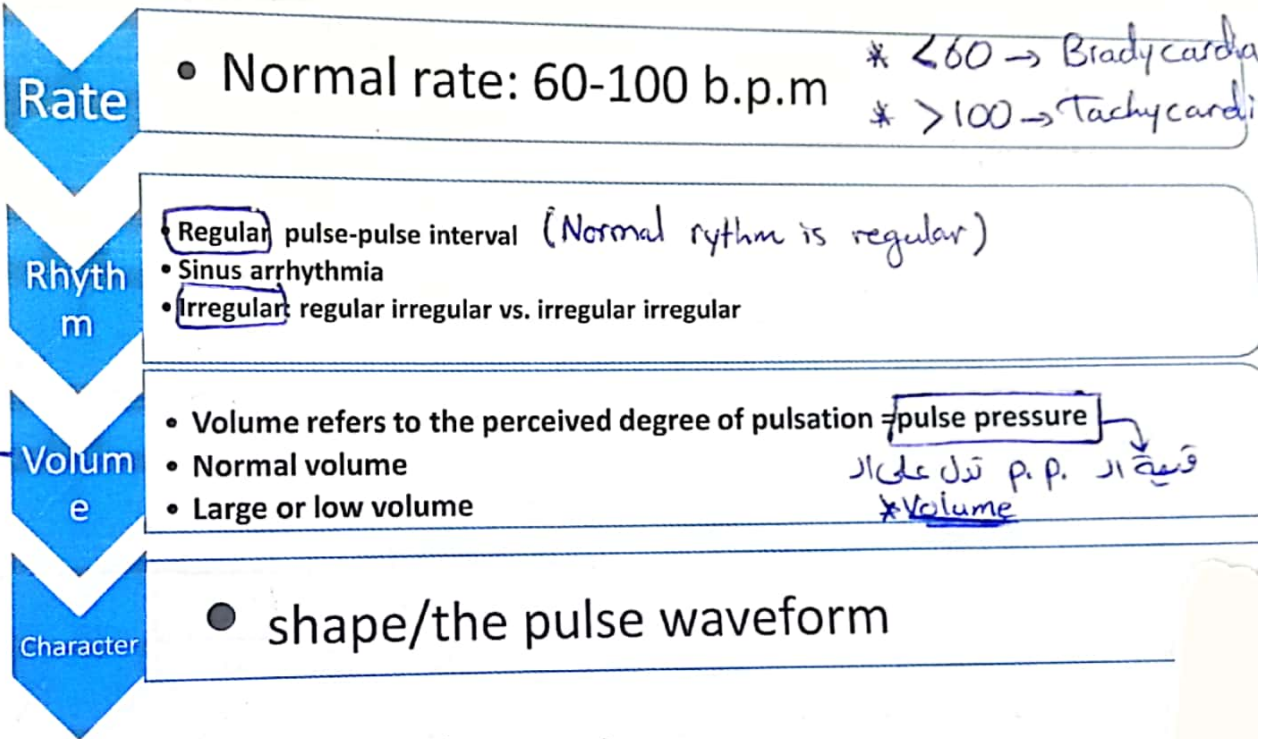 Rate
• Normal rate: 60-100 b.p.m
* <60 → Bradycardia
* >100 → Tachycardi
Rhyth
m
• Regular pulse-pulse interval (Normal rythm is regular)
• Sinus arrhythmia
• Irregular: regular irregular vs. irregular irregular
Volum
e
• Volume refers to the perceived degree of pulsation =pulse pressure
• Normal volume
• Large or low volume
قيمة الـ p.p. تدل على الـ
*Volume
Character
• shape/the pulse waveform